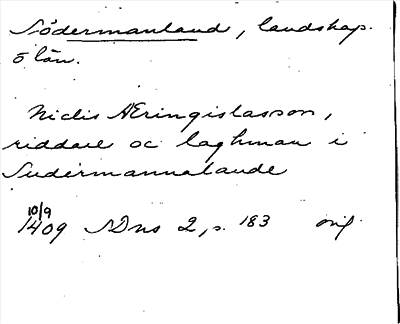 Södermanland, landskap.
o län.
Niclis Æringislasson,
riddare oc laghman i
Sudermannalande
10/9
1409 SDns 2, s. 183 orig.